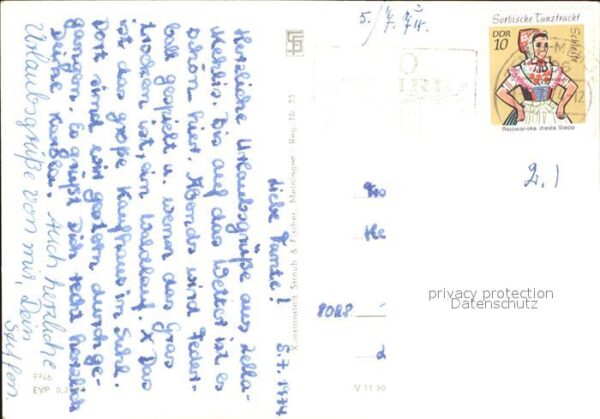 5.7.1974
Liebe Tante!
Herzliche Urlaubsgrüße aus Zella-
Mehlis. Bis auf das Wetter ist es
schön hier. Abends wird Feder-
ball gespielt u. wenn das Gras
trocken ist, ein Waldlauf. X Das
ist das große Kaufhaus in Suhl.
Dort sind wir gestern durchge-
gangen. Es grüßt Dich recht herzlich
Deine Karola. Auch herzliche
Urlaubsgrüße von mir, Dein
Steffen.
EVP 0,2
Kunstanstalt Straub & Fischer, Meiningen, Reg. Nr. 33
V 11 50
5./7.74.
Sorbische Tanztracht
Schleife
DDR
10
Rejowanska drasta Slepo
2,1
8028
privacy protection
Datenschutz